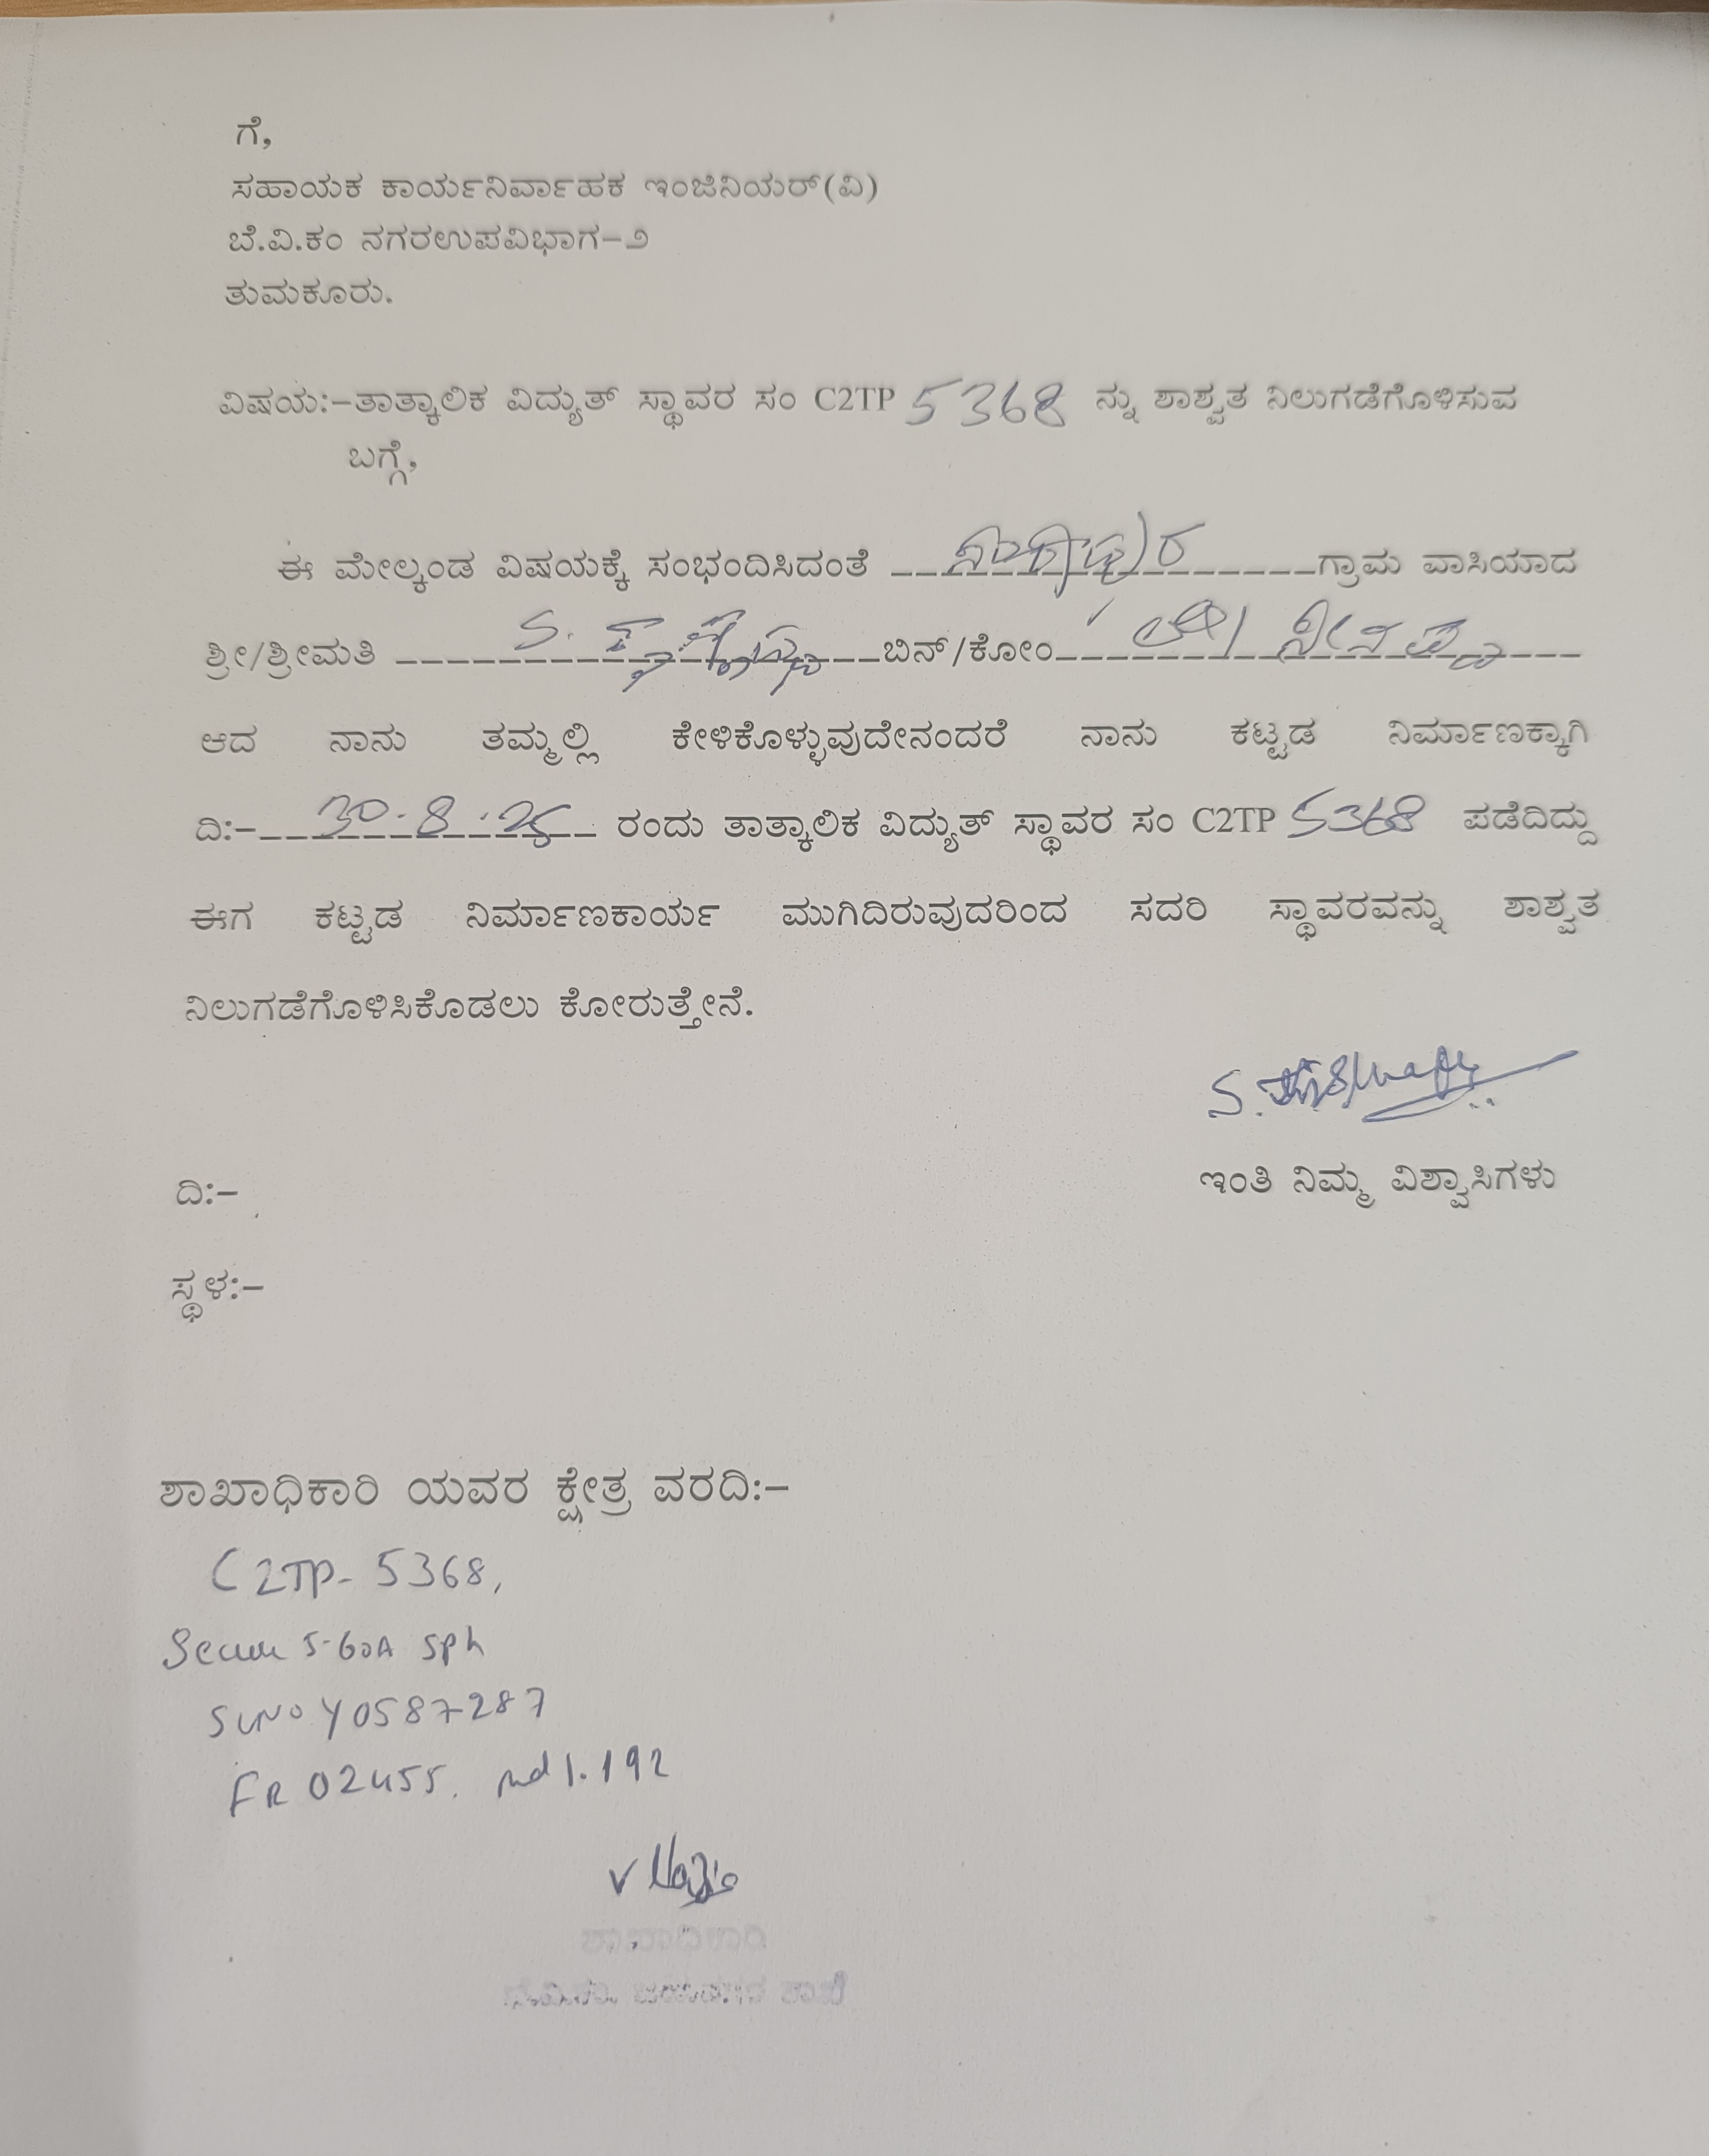 ಗೆ,
ಸಹಾಯಕ ಕಾರ್ಯನಿರ್ವಾಹಕ ಇಂಜಿನಿಯರ್(ವಿ)
ಬೆ.ವಿ.ಕಂ ನಗರಉಪವಿಭಾಗ-೨
ತುಮಕೂರು.
ವಿಷಯ:-ತಾತ್ಕಾಲಿಕ ವಿದ್ಯುತ್ ಸ್ಥಾವರ ಸಂ C2TP 5368 ನ್ನು ಶಾಶ್ವತ ನಿಲುಗಡೆಗೊಳಿಸುವ
ಬಗ್ಗೆ,
ಈ ಮೇಲ್ಕಂಡ ವಿಷಯಕ್ಕೆ ಸಂಭಂದಿಸಿದಂತೆ ಗ್ರಾಮ ವಾಸಿಯಾದ
ಶ್ರೀ/ಶ್ರೀಮತಿ ಬಿನ್/ಕೋಂ
ಆದ ನಾನು ತಮ್ಮಲ್ಲಿ ಕೇಳಿಕೊಳ್ಳುವುದೇನಂದರೆ ನಾನು ಕಟ್ಟಡ ನಿರ್ಮಾಣಕ್ಕಾಗಿ
ದಿ:- 30-8-25 ರಂದು ತಾತ್ಕಾಲಿಕ ವಿದ್ಯುತ್ ಸ್ಥಾವರ ಸಂ C2TP 5368 ಪಡೆದಿದ್ದು
ಈಗ ಕಟ್ಟಡ ನಿರ್ಮಾಣಕಾರ್ಯ ಮುಗಿದಿರುವುದರಿಂದ ಸದರಿ ಸ್ಥಾವರವನ್ನು ಶಾಶ್ವತ
ನಿಲುಗಡೆಗೊಳಿಸಿಕೊಡಲು ಕೋರುತ್ತೇನೆ.
ಇಂತಿ ನಿಮ್ಮ ವಿಶ್ವಾಸಿಗಳು
ದಿ:-
ಸ್ಥಳ:-
ಶಾಖಾಧಿಕಾರಿ ಯವರ ಕ್ಷೇತ್ರ ವರದಿ:-
C2TP- 5368,
5-60A
SLNO Y0587287
FR 02455. md 1.192